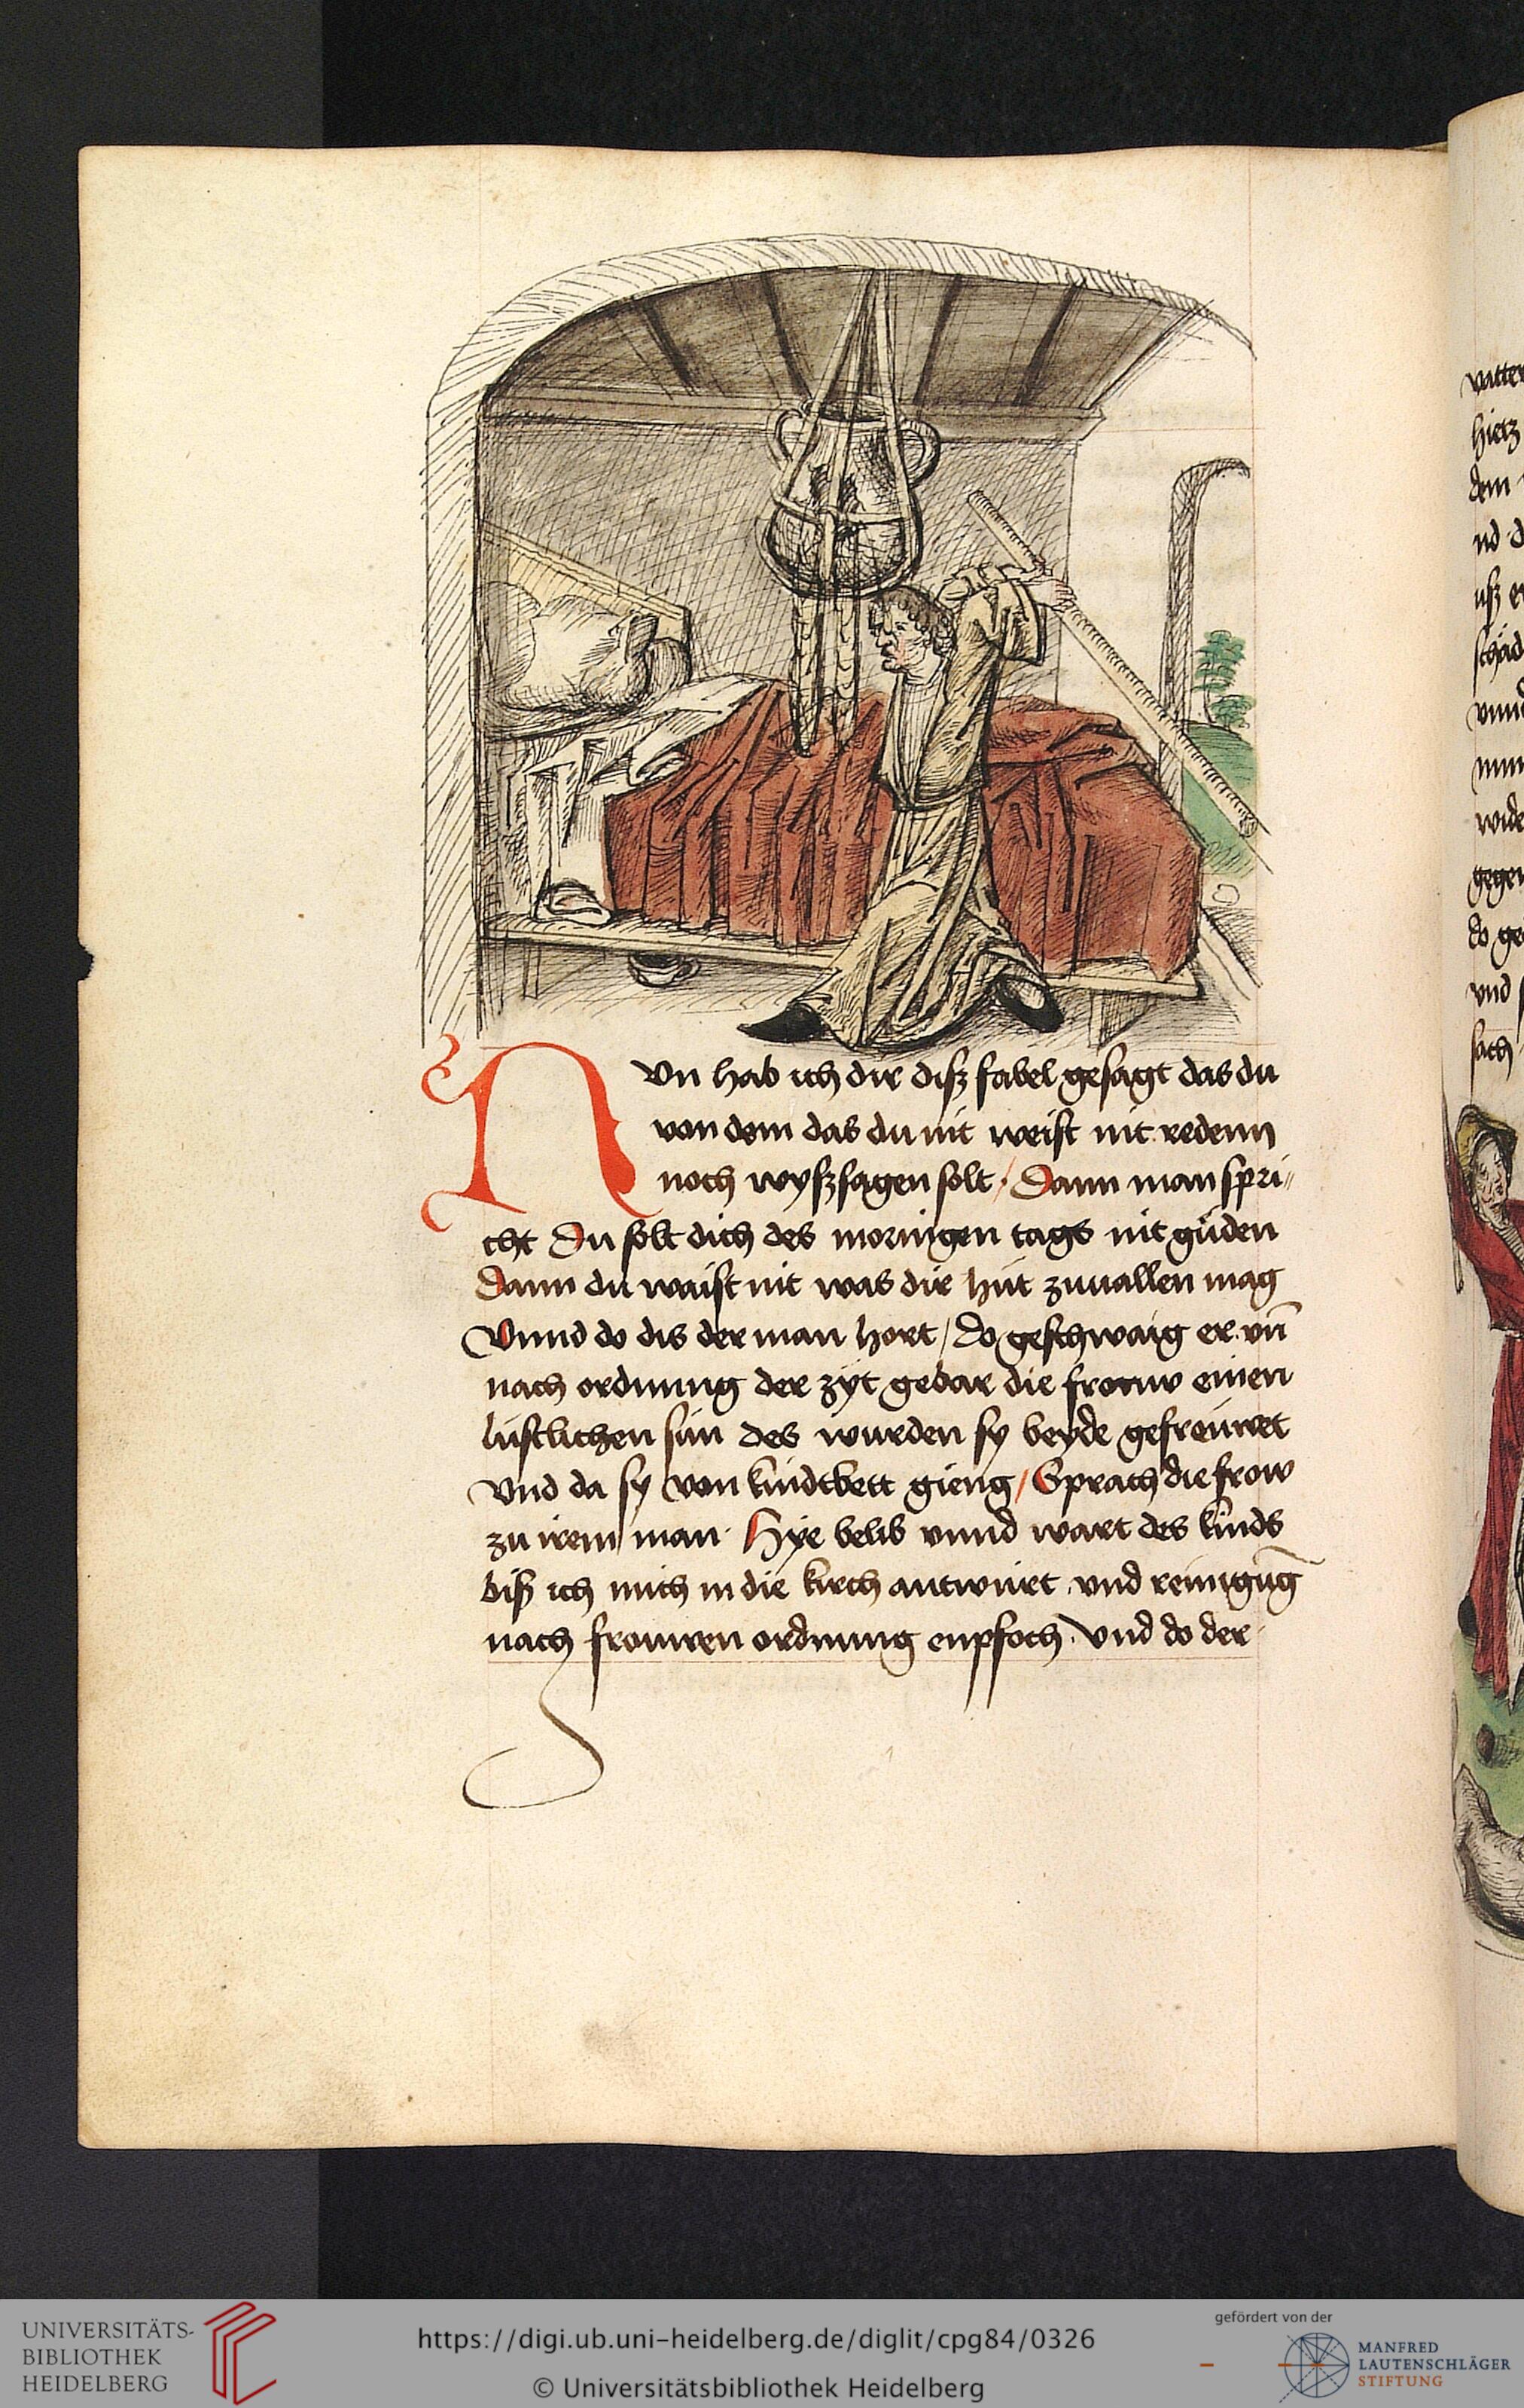 Nun hab ich dir disz fabel gesagt das du
von dem das du nit weist nit redenn
noch wyszsagen solt / Dann man spri„
cht Du solt dich des moringen tags nit güden
Dann du waist nit was dir hüt zuuallen mag
Vnnd do dis der man hort / do geschwaig er vn̄
nach ordnung der zyt gebar die frouw einen
lustlichen sün des wurden sy beyde gefreüwet
Vnd da sy von kindtbett gieng / Sprach die frow
zu irem man · Hye belib vnnd wart des kinds
bisz ich mich in die kirch antwürt vnd reinigūg
nach frouwen ordnung enpfoch · Vnd do der
vatter
hietz
dem
nd
usz
vnnd
gegen
do
vnd
sach
UNIVERSITÄTS-
BIBLIOTHEK
HEIDELBERG
https://digi.ub.uni-heidelberg.de/diglit/cpg84/0326
© Universitätsbibliothek Heidelberg
gefördert von der
MANFRED
LAUTENSCHLÄGER
STIFTUNG